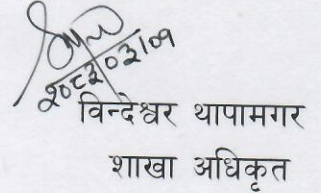 २०८३/०३/०१
विन्देश्वर थापामगर
शाखा अधिकृत